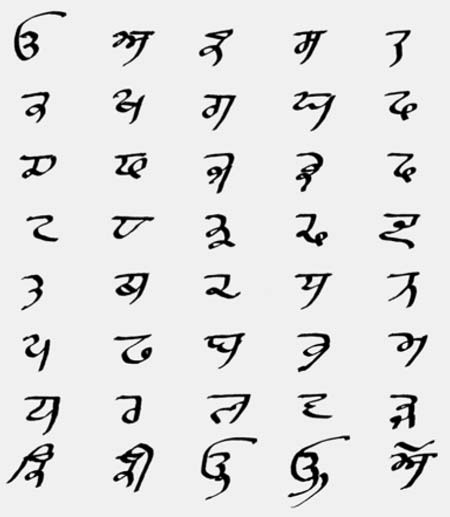 ੳ ਅ ੲ ਸ ਹ
ਕ ਖ ਗ ਘ ਙ
ਚ ਛ ਜ ਝ ਞ
ਟ ਠ ਡ ਢ ਣ
ਤ ਥ ਦ ਧ ਨ
ਪ ਫ ਬ ਭ ਮ
ਯ ਰ ਲ ਵ ੜ
ਕਿ ਕੀ ਉ ਊ